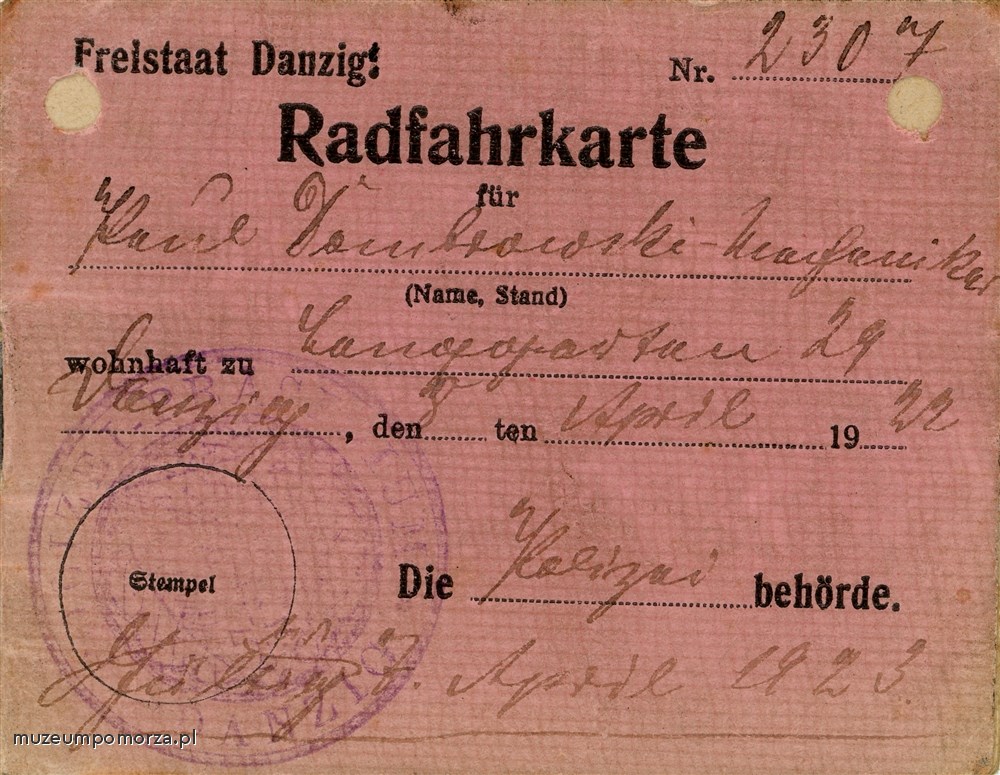 Freistaat Danzig.
Nr. 2307
Radfahrkarte
für
Paul Dombrowski - Mechaniker
(Name, Stand)
wohnhaft zu Langgarten 29
Danzig, den 3 ten April 1922
Stempel
Die Polizei behörde.
Gültig 7. April 1923
DANZIG
muzeumpomorza.pl